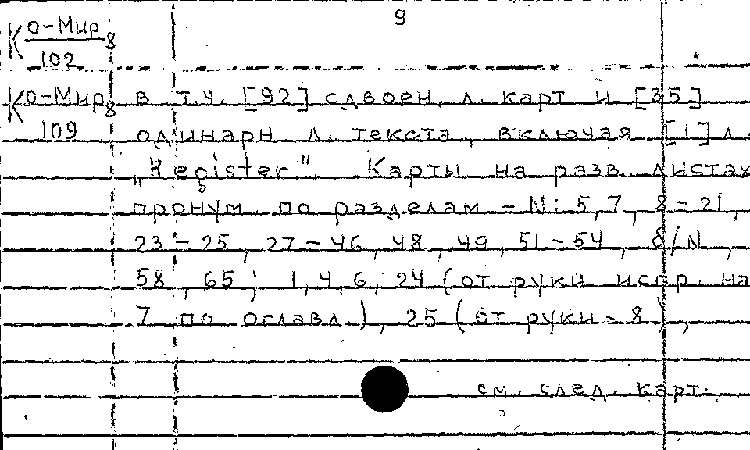 9
Ко-Мир 8
102
Ко-Мир 8
109
в т.ч. [92] сдвоен. л. карт и [35]
одинарн л. текста, включая [1] л.
„Register". Карты на разв. листах
пронум по разделам - N: 5, 7, 8-21,
23-25, 27-46, 48, 49, 51-54, б/N,
58, 65; 1, 4, 6, 24 (от руки испр. на
7 по оглавл), 25 (от руки - 8),
см. след. карт.